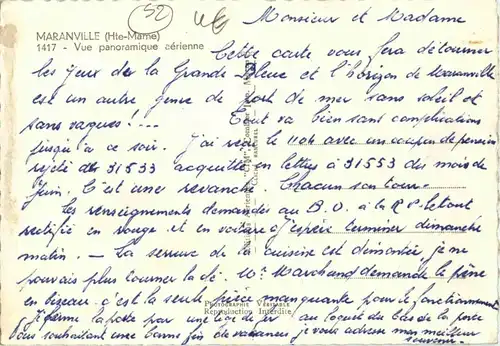 52
Monsieur et Madame
MARANVILLE (Hte-Marne)
1417 - Vue panoramique aérienne
Cette carte vous fera détourner
les yeux de la Grande Bleue et l'horizon de Maranville
est un autre genre de port de mer sans soleil et
sans vagues !... Tout va bien sans complications
jusqu'à ce soir. J'ai reçu le 1104 avec un coupon de pension
rejeté de 31533 acquitté en lettres à 31553 des mois de
Juin. C'est une revanche. Chacun son tour.
Les renseignements demandés au B.O. à la R.P. le tout
rectifié en rouge et en voiture J'espère terminer dimanche
matin. — La serrure de la cuisine est démontée je ne
pouvais plus tourner la clé. Mr Marchand demande le pène
en biseau c'est la seule pièce manquante pour le fonctionnement
PHOTOGRAPHIE VÉRITABLE
Reproduction Interdite
Je ferme la porte par une tige de fer au bas de la porte
Vous souhaitant une bonne fin de vacances je vous adresse mon meilleur
souvenir.